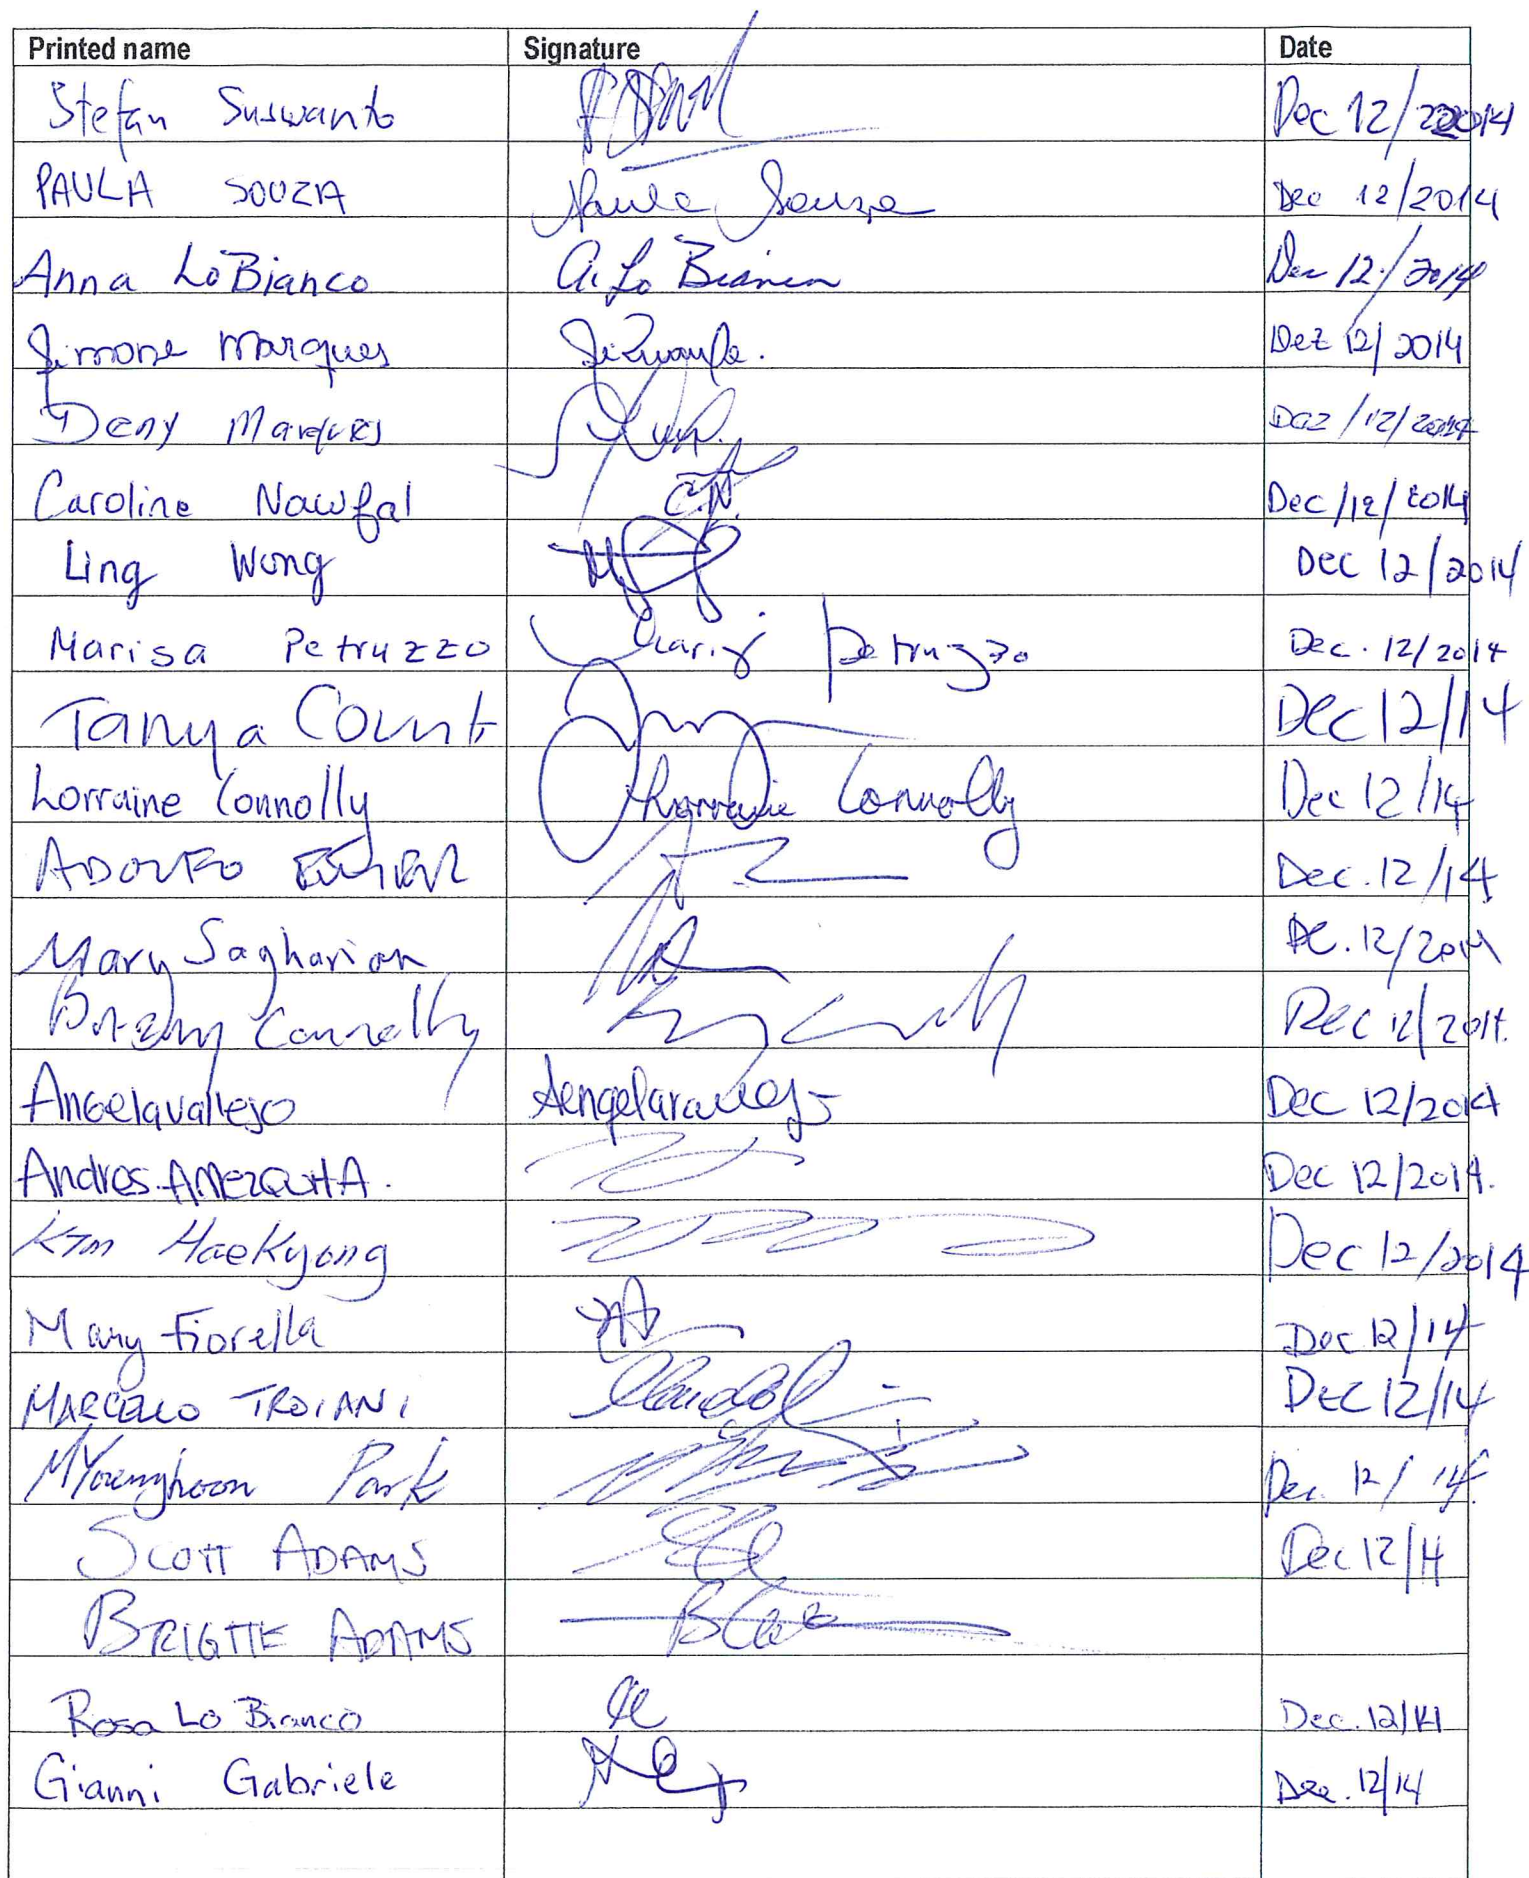 Printed name Signature Date
Stefan Suswanto Dec 12/2014
PAULA SOUZA Paula Souza Dec 12/2014
Anna LoBianco A. Lo Bianco Dec 12/2014
Simone Marques Dez 12/2014
Deny Marques Dez /12/2014
Caroline Nawfal C.N. Dec/12/2014
Ling Wong Dec 12/2014
Marisa Petruzzo Petruzzo Dec. 12/2014
Tanya Count Dec 12/14
Lorraine Connolly Lorraine Connolly Dec 12/14
ADOLFO Dec. 12/14
Mary Sagharian 12/2014
Connolly Dec 12/2014.
Angelavallejo Dec 12/2014
Andres. AMEZQUITA. Dec 12/2014.
Kim Haekyong Dec 12/2014
Mary Fiorella Dec 12/14
MARCELLO TROIANI DEC 12/14
MYoung hoon Park Dec. 12/14.
SCOTT ADAMS Dec 12/14
BRIGITTE ADAMS
Rosa Lo Bianco Dec. 12/14
Gianni Gabriele Dec. 12/14